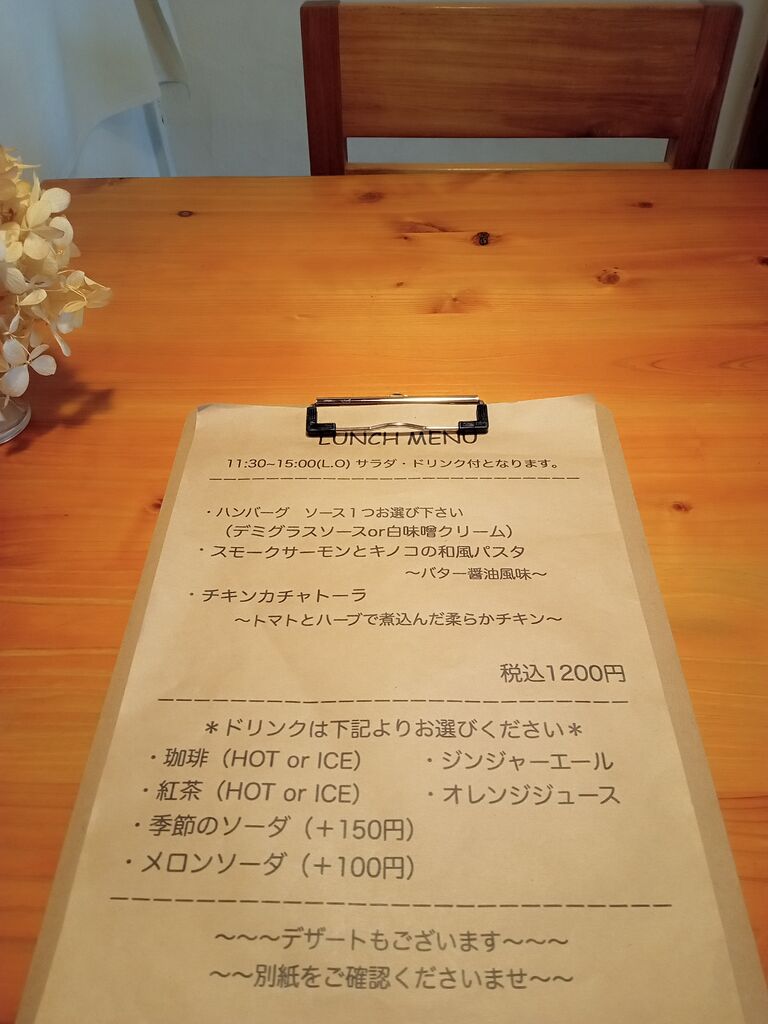 LUNCH MENU
11:30~15:00(L.O) サラダ・ドリンク付となります。
・ハンバーグ　ソース1つお選び下さい
（デミグラスソースor白味噌クリーム）
・スモークサーモンとキノコの和風パスタ
〜バター醤油風味〜
・チキンカチャトーラ
〜トマトとハーブで煮込んだ柔らかチキン〜
税込1200円
＊ドリンクは下記よりお選びください＊
・珈琲（HOT or ICE）　・ジンジャーエール
・紅茶（HOT or ICE）　・オレンジジュース
・季節のソーダ（＋150円）
・メロンソーダ（＋100円）
〜〜〜デザートもございます〜〜〜
〜〜別紙をご確認くださいませ〜〜